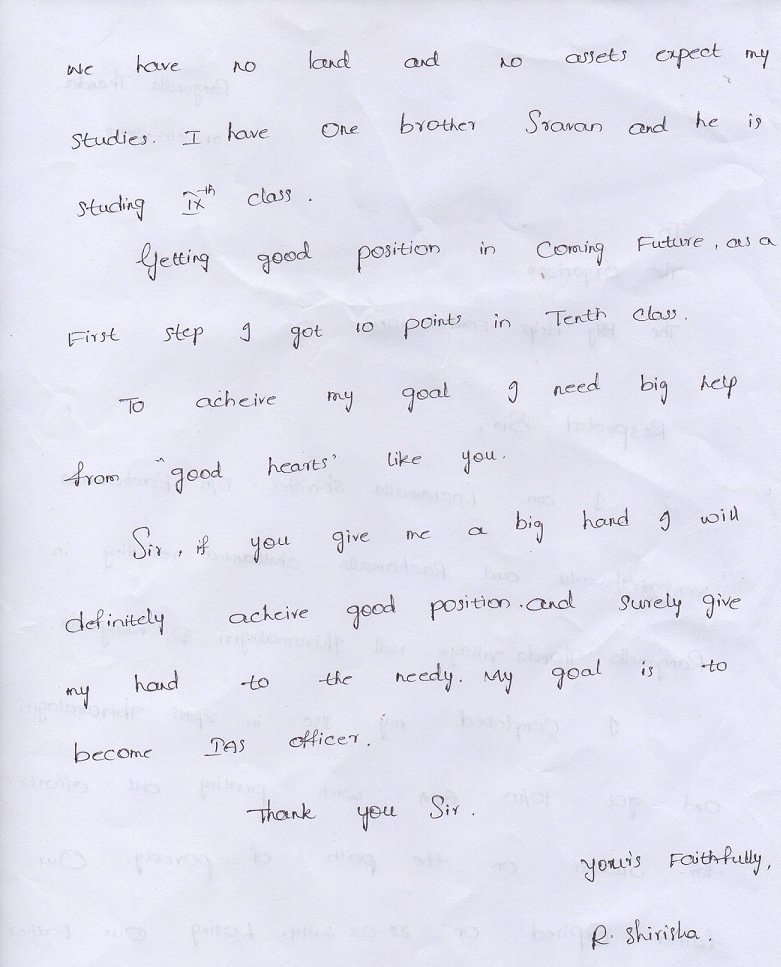 We have no land and no assets expect my
studies. I have One brother Sravan and he is
studing IXth class.
Getting good position in Coming Future, as a
First step I got 10 points in Tenth Class.
To acheive my goal I need big help
from "good hearts' like you.
Sir, if you give me a big hand I will
definitely acheive good position.and surely give
my hand to the needy. My goal is to
become IAS officer.
Thank you Sir.
yours Faithfully,
R. Shirisha.